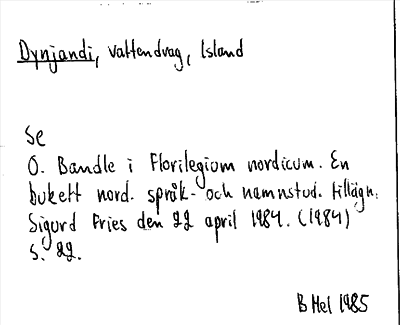 Dynjandi, vattendrag, Island
Se
O. Bandle i Florilegium nordicum. En
bukett nord. språk- och namnstud. tillägn.
Sigurd Fries den 22 april 1984. (1984)
S. 22.
B Hel 1985